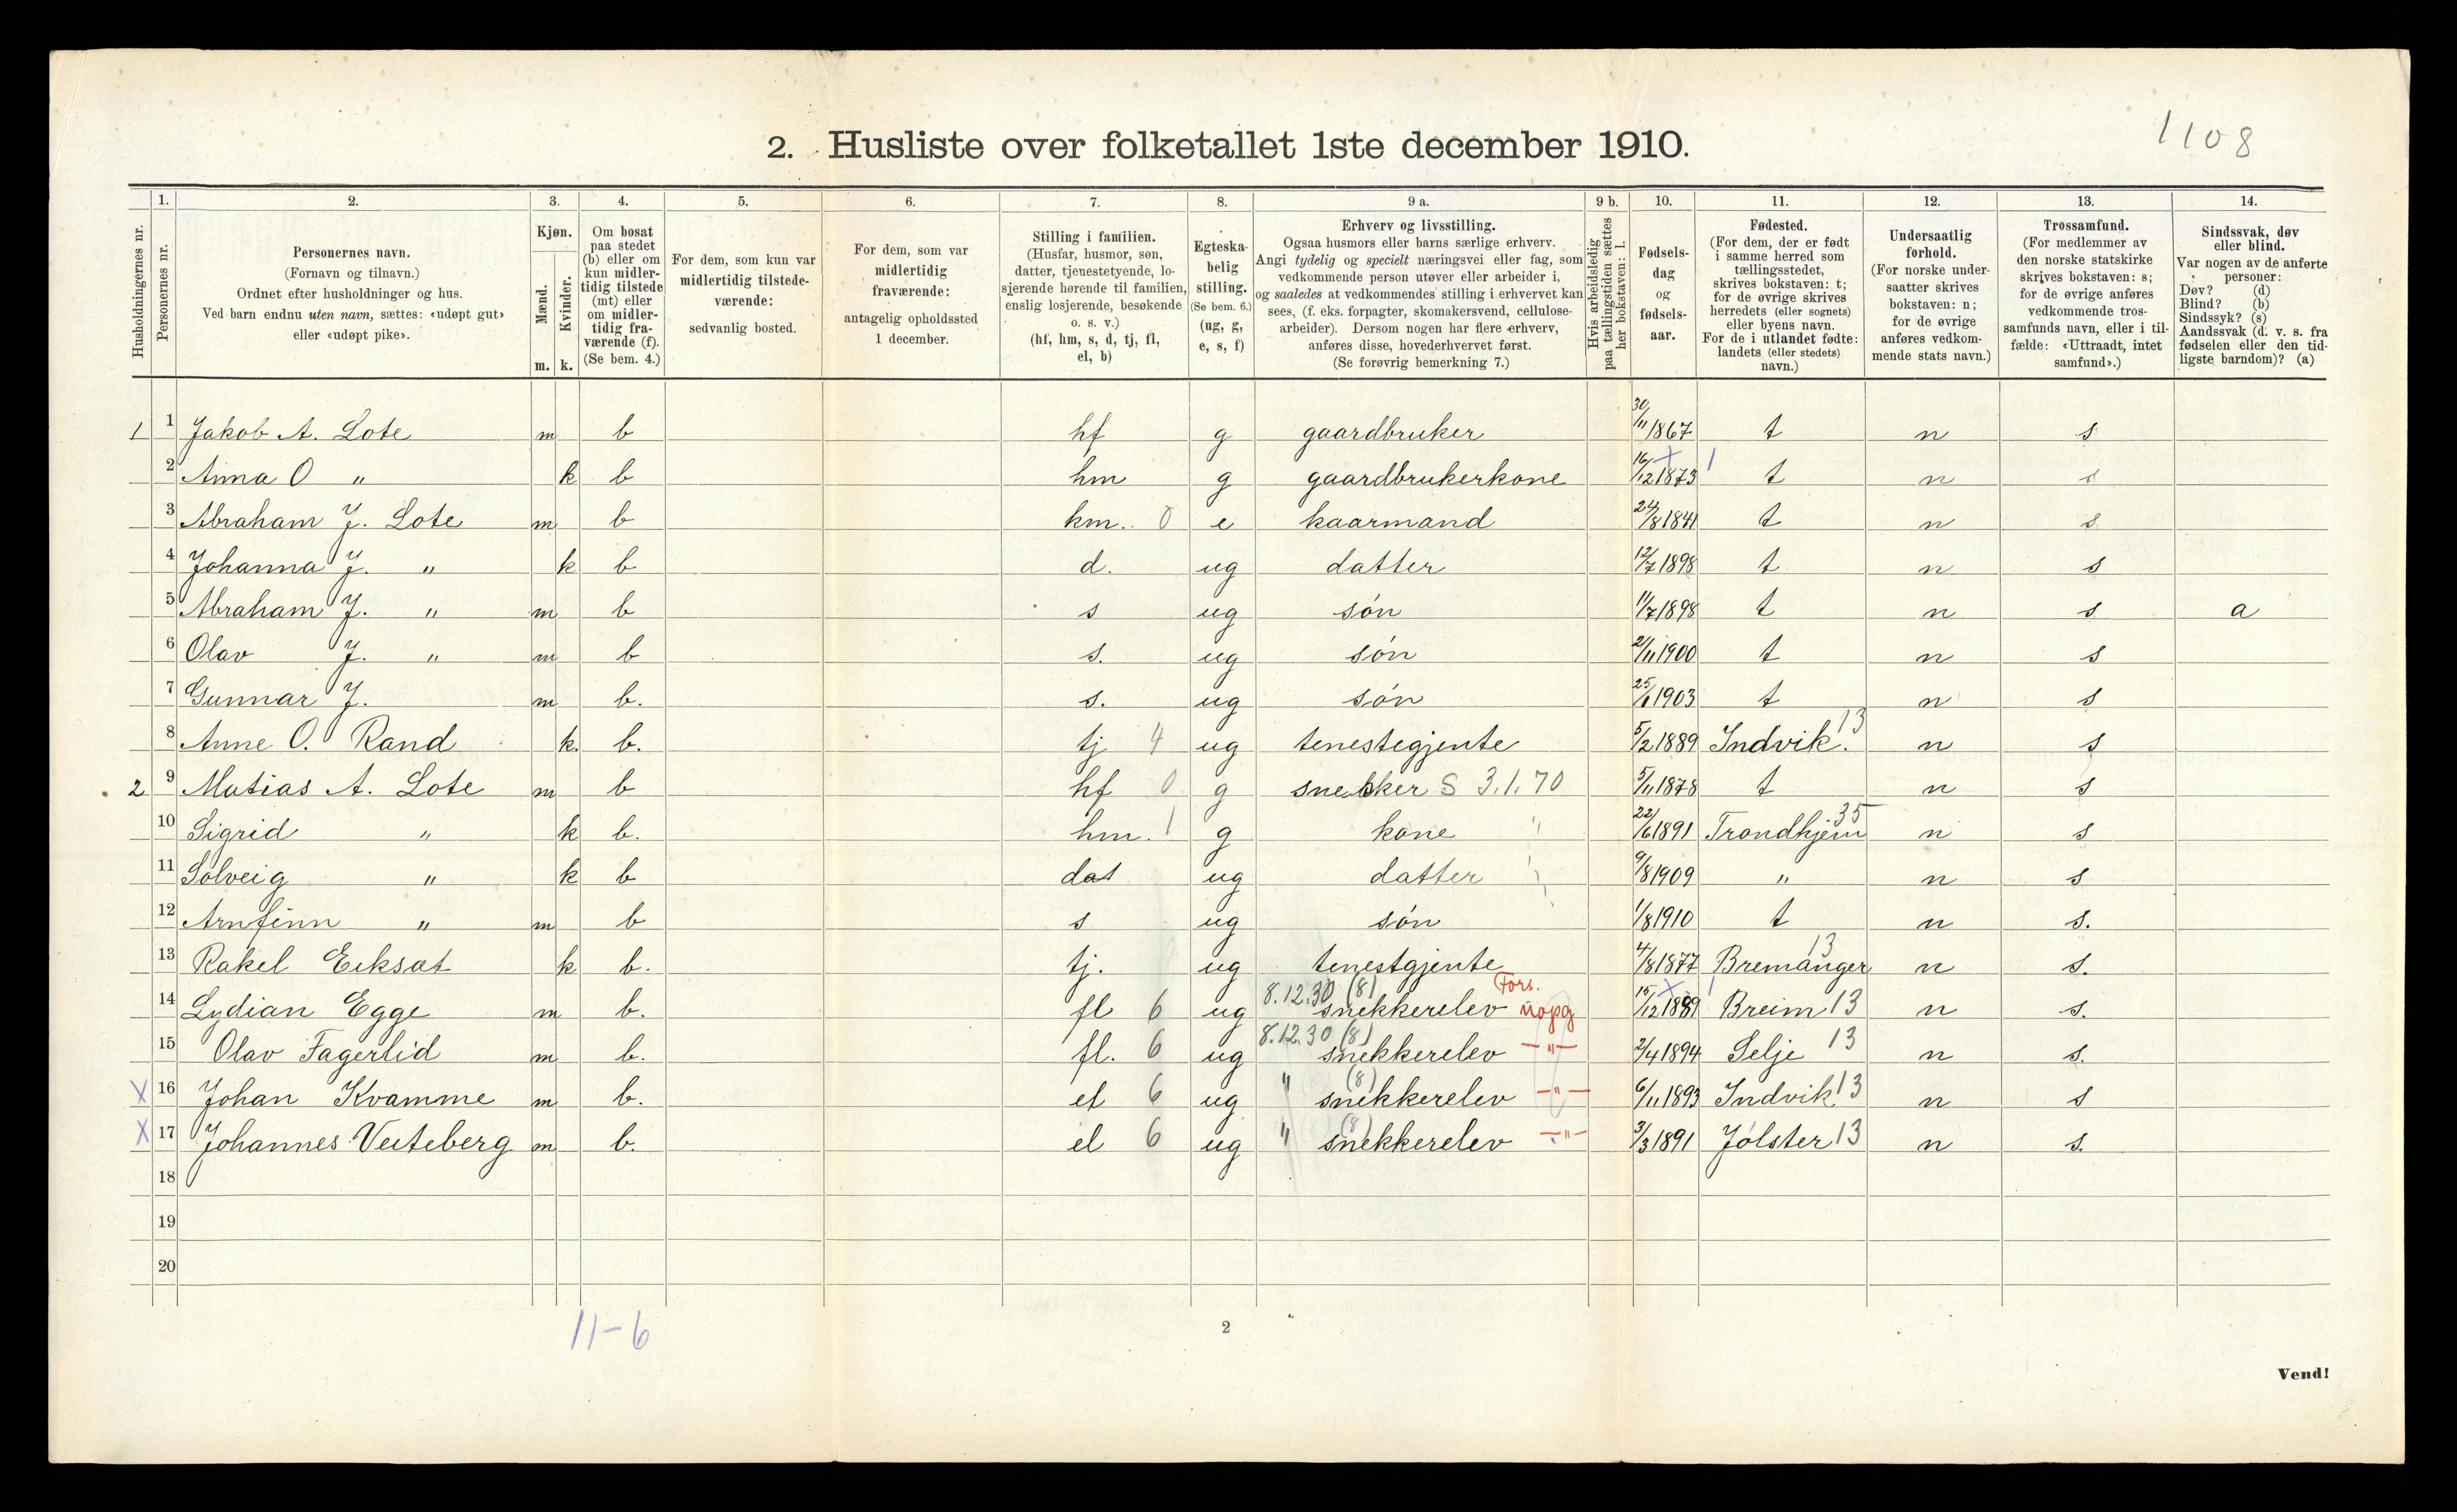 1108
2. Husliste over folketallet 1ste december 1910.
Husholdningernes nr.
1. Personernes nr.
2. Personernes navn.
(Fornavn og tilnavn.)
Ordnet efter husholdninger og hus.
Ved barn endnu uten navn, sættes: «udøpt gut»
eller «udøpt pike».
3. Kjøn.
Mænd. m.
Kvinder. k.
4. Om bosat
paa stedet
(b) eller om
kun midler-
tidig tilstede
(mt) eller
om midler-
tidig fra-
værende (f).
(Se bem. 4.)
5. For dem, som kun var
midlertidig tilstede-
værende:
sedvanlig bosted.
6. For dem, som var
midlertidig
fraværende:
antagelig opholdssted
1 december.
7. Stilling i familien.
(Husfar, husmor, søn,
datter, tjenestetyende, lo-
sjerende hørende til familien,
enslig losjerende, besøkende
o. s. v.)
(hf, hm, s, d, tj, fl,
el, b)
8. Egteska-
belig
stilling.
(Se bem. 6.)
(ug, g,
e, s, f)
9 a. Erhverv og livsstilling.
Ogsaa husmors eller barns særlige erhverv.
Angi tydelig og specielt næringsvei eller fag, som
vedkommende person utøver eller arbeider i,
og saaledes at vedkommendes stilling i erhvervet kan
sees, (f. eks. forpagter, skomakersvend, cellulose-
arbeider). Dersom nogen har flere erhverv,
anføres disse, hovederhvervet først.
(Se forøvrig bemerkning 7.)
9 b. Hvis arbeidsledig
paa tællingstiden sættes
her bokstaven: l.
10. Fødsels-
dag
og
fødsels-
aar.
11. Fødested.
(For dem, der er født
i samme herred som
tællingsstedet,
skrives bokstaven: t;
for de øvrige skrives
herredets (eller sognets)
eller byens navn.
For de i utlandet fødte:
landets (eller stedets)
navn.)
12. Undersaatlig
forhold.
(For norske under-
saatter skrives
bokstaven: n;
for de øvrige
anføres vedkom-
mende stats navn.)
13. Trossamfund.
(For medlemmer av
den norske statskirke
skrives bokstaven: s;
for de øvrige anføres
vedkommende tros-
samfunds navn, eller i til-
fælde: «Uttraadt, intet
samfund».)
14. Sindssvak, døv
eller blind.
Var nogen av de anførte
personer:
Døv? (d)
Blind? (b)
Sindssyk? (s)
Aandssvak (d. v. s. fra
fødselen eller den tid-
ligste barndom)? (a)
1 1 Jakob A. Lote m b hf g gaardbruker 30/11 1867 t n s
2 Anna O " k b hm g gaardbrukerkone 16/12 1873 t n s
3 Abraham J. Lote m b km. 0 e kaarmand 24/8 1841 t n s
4 Johanna J. " k b d. ug datter 12/7 1898 t n s
5 Abraham J. " m b s ug són 11/7 1898 t n s a
6 Olav J. " m b s. ug són 2/11 1900 t n s
7 Gunnar J. m b. s. ug són 1903 t n s
8 Anne O. Rand k. b. tj 4 ug tenestegjente 5/2 1889 Indvik. 13 n s
2 9 Matias A. Lote m b hf 0 g snekker S 3.1.70 5/11 1878 t n s
10 Sigrid " k b. hm. 1 g kone " 22/6 1891 Trondhjem 35 n s
11 Solveig " k b dat ug datter 9/8 1909 " n s
12 Arnfinn " m b s ug són 1/8 1910 t n s.
13 Rakel Eiksat k b. tj. ug tenestgjente 4/8 1877 Bremanger 13 n s.
14 Lydian Egge m b. fl 6 ug 8.12.30 (8) snekkerelev Fors. uopg 15/12 1889 Breim 13 n s.
15 Olav Fagerlid m b. fl. 6 ug 8.12.30 (8) snekkerelev —"— 2/4 1894 Selje 13 n s.
X 16 Johan Kvamme m b. el 6 ug " (8) snekkerelev —"— 6/11 1893 Indvik 13 n s
X 17 Johannes Veiteberg m b. el 6 ug " (8) snekkerelev —"— 3/3 1891 Jólster 13 n s.
18
19
20
11-6
2
Vend!